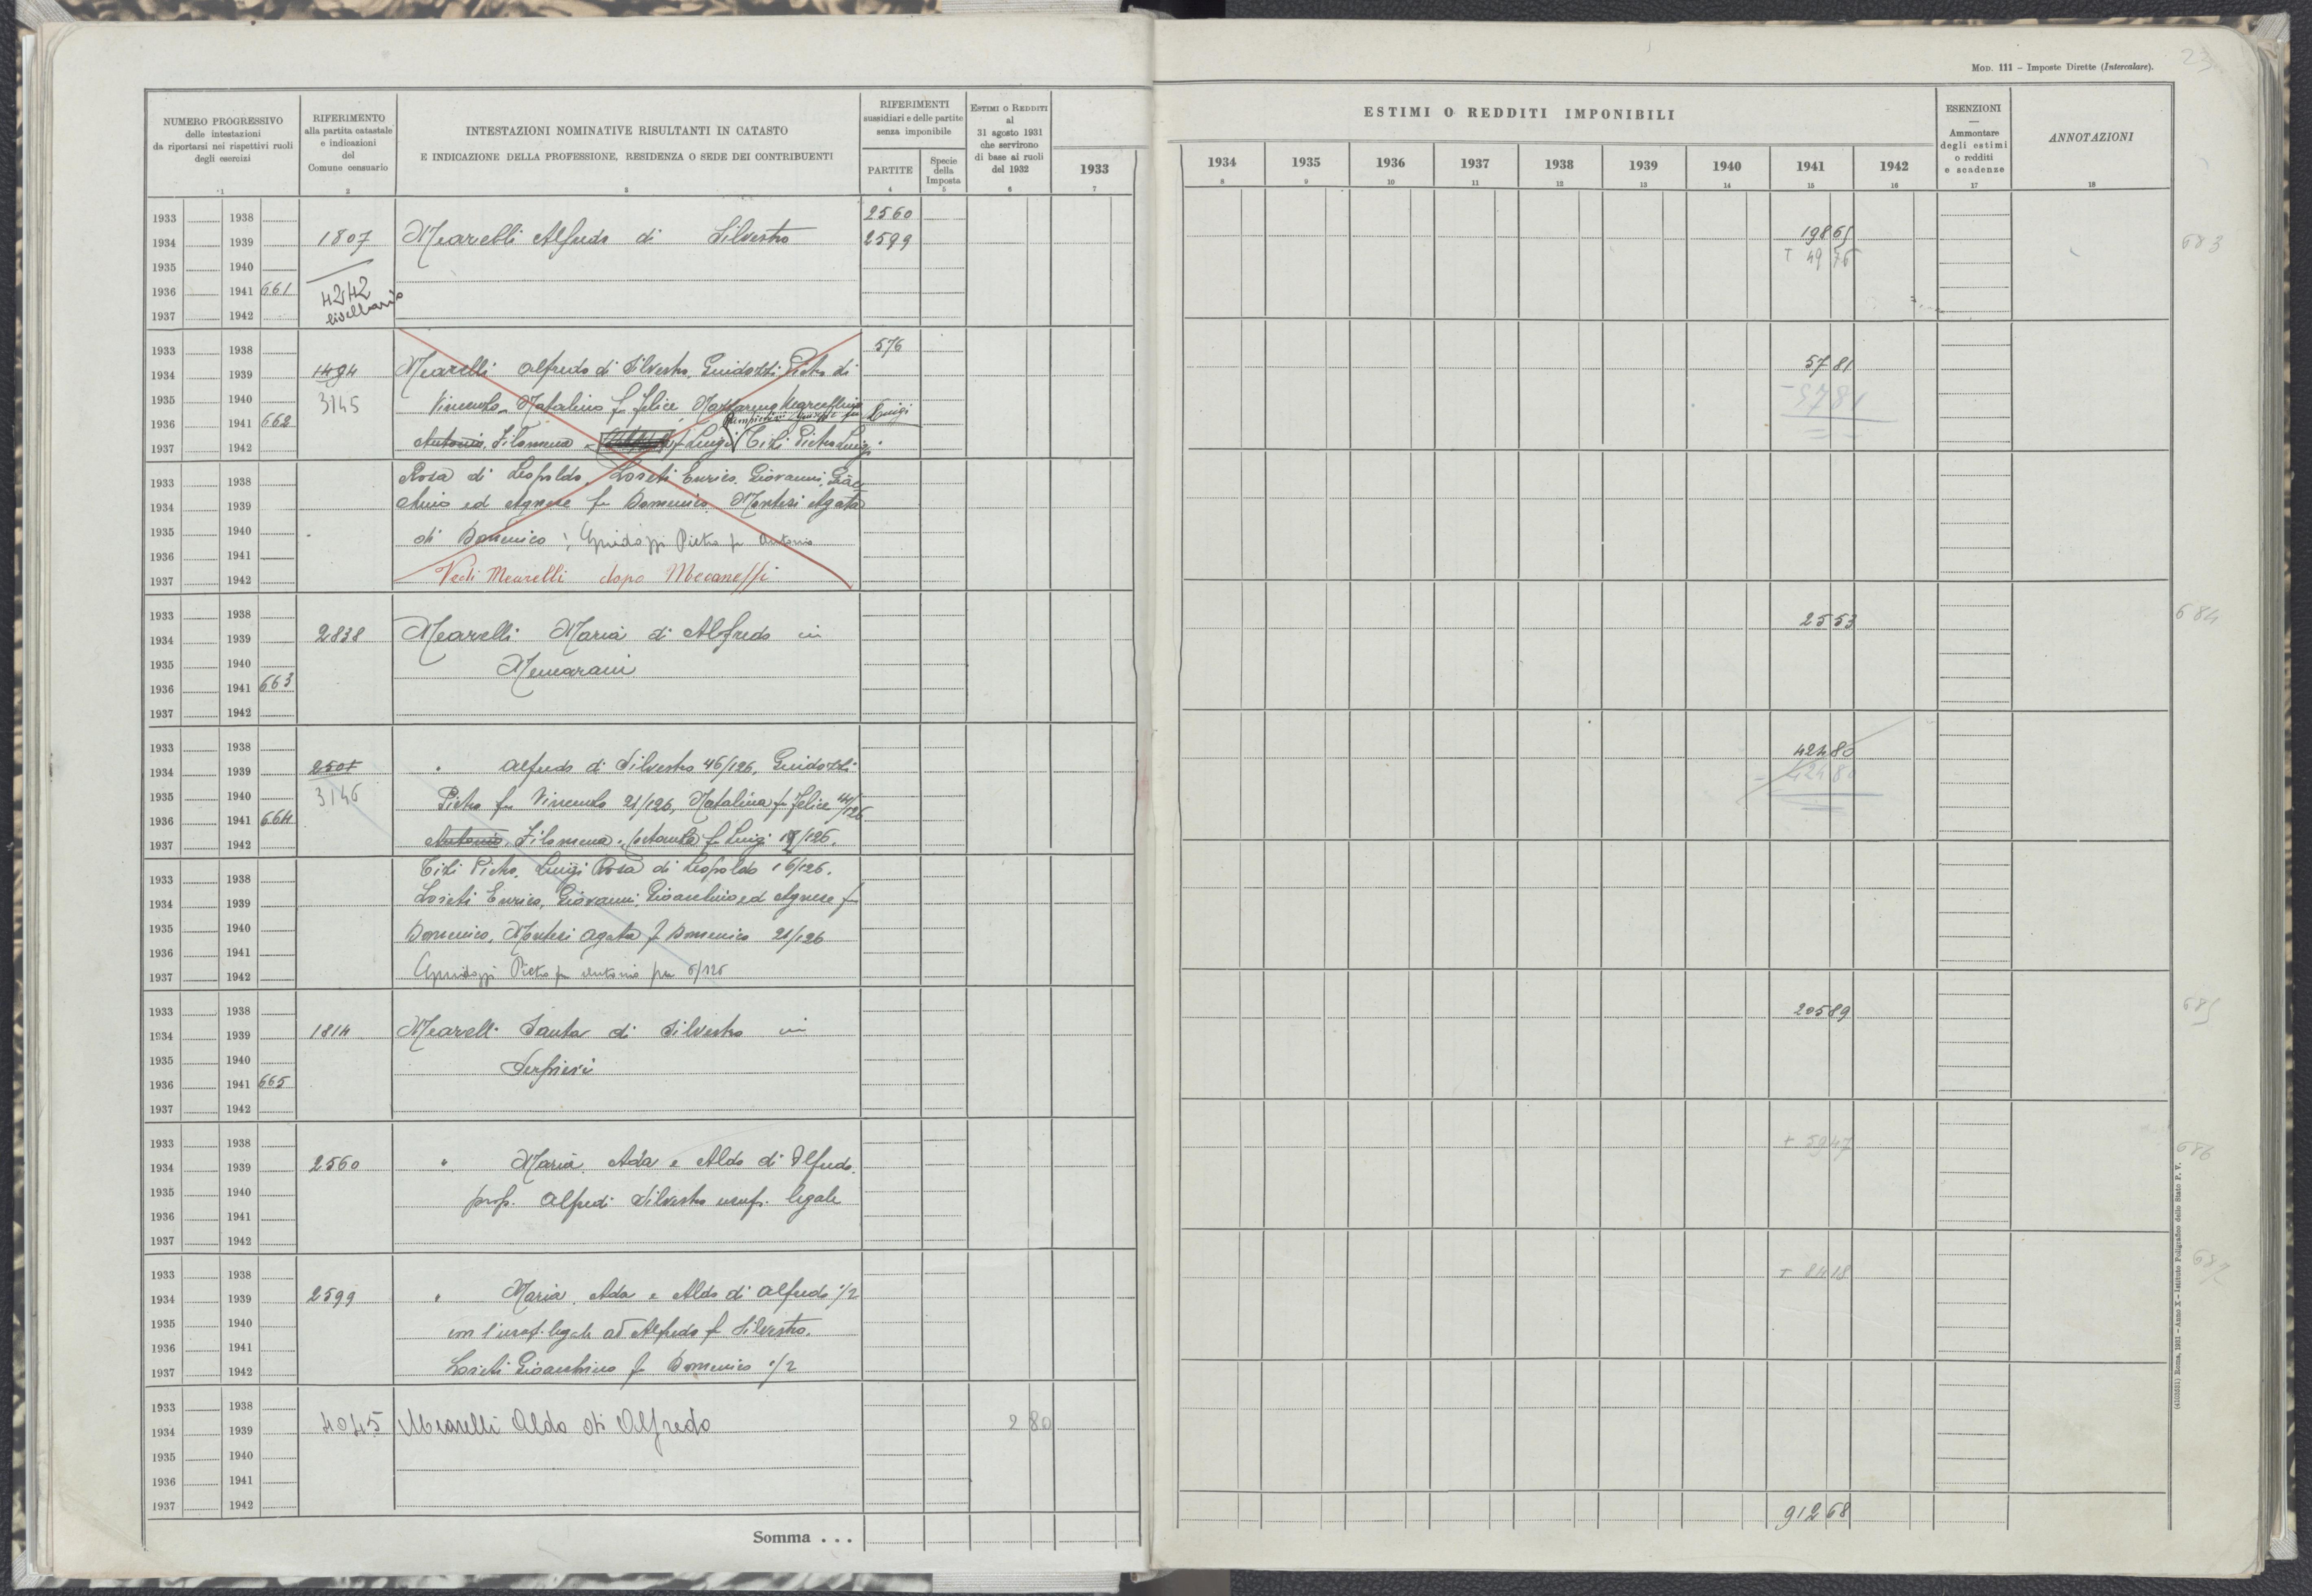 Mod. 111 – Imposte Dirette (Intercalare).
23
NUMERO PROGRESSIVO
delle intestazioni
da riportarsi nei rispettivi ruoli
degli esercizi
1
RIFERIMENTO
alla partita catastale
e indicazioni
del
Comune censuario
2
INTESTAZIONI NOMINATIVE RISULTANTI IN CATASTO
E INDICAZIONE DELLA PROFESSIONE, RESIDENZA O SEDE DEI CONTRIBUENTI
3
RIFERIMENTI
sussidiari e delle partite
senza imponibile
PARTITE
4
Specie
della
Imposta
5
Estimi o Redditi
al
31 agosto 1931
che servirono
di base ai ruoli
del 1932
6
ESTIMI O REDDITI IMPONIBILI
1933
7
1934
8
1935
9
1936
10
1937
11
1938
12
1939
13
1940
14
1941
15
1942
16
ESENZIONI
—
Ammontare
degli estimi
o redditi
e scadenze
17
ANNOTAZIONI
18
1933 1938 2560
1934 1939 1807 Mearelli Alfredo di Silvestro 2599 198 65 683
1935 1940 + 49 76
1936 1941 661 4242
1937 1942 livellario
1933 1938 576
1934 1939 1494 Mearelli Alfredo di Silvestro, Guidozzi Pietro di 57 81
1935 1940 3145 Vincenzo, Natalino fu Felice, - 57 81
1936 1941 662 Luigi
1937 1942 Antonio, Filomena fu Luigi Tizi Pietro Luigi
1933 1938 Rosa di Leopoldo, Loreti Enrico, Giovanni, Gioac
1934 1939 chino ed Agnese fu Domenico, Montesi Agata
1935 1940 di Domenico; Guidozzi Pietro fu Antonio
1936 1941
1937 1942 Vedi Mearelli dopo Mecanelli
1933 1938
1934 1939 2838 Mearelli Maria di Alfredo in 25 53 684
1935 1940 Memarani
1936 1941 663
1937 1942
1933 1938 424 80
1934 1939 2501 " Alfredo di Silvestro 46/126, Guidozzi - 424 80
1935 1940 3146 Pietro fu Vincenzo 21/126, Natalina fu Felice /126
1936 1941 664
1937 1942 Antonio, Filomena fu Luigi /126.
1933 1938 Tizi Pietro, Luigi Rosa di Leopoldo 16/126.
1934 1939 Loreti Enrico, Giovanni, Gioacchino ed Agnese fu
1935 1940 Domenico, Montesi Agata fu Domenico 21/126
1936 1941
1937 1942 Guidozzi Pietro fu Antonio per 6/126
1933 1938 205 89 685
1934 1939 1814 Mearelli Santa di Silvestro in
1935 1940 Serpieri
1936 1941 665
1937 1942
1933 1938 + 59 47 686
1934 1939 2560 " Maria, Ada e Aldo di Alfredo.
1935 1940 prop. Alfredi Silvestro usuf. legale
1936 1941
1937 1942
1933 1938 + 84 18 687
1934 1939 2599 " Maria, Ada e Aldo di Alfredo 1/2
1935 1940 con l'usuf. legale ad Alfredo fu Silvestro.
1936 1941
1937 1942 Loreti Gioacchino fu Domenico 1/2
1933 1938
1934 1939 4045 Mearelli Aldo di Alfredo 2 80
1935 1940
1936 1941
1937 1942
Somma . . . 912 68
(4103681) Roma, 1931 – Anno X – Istituto Poligrafico dello Stato P. V.